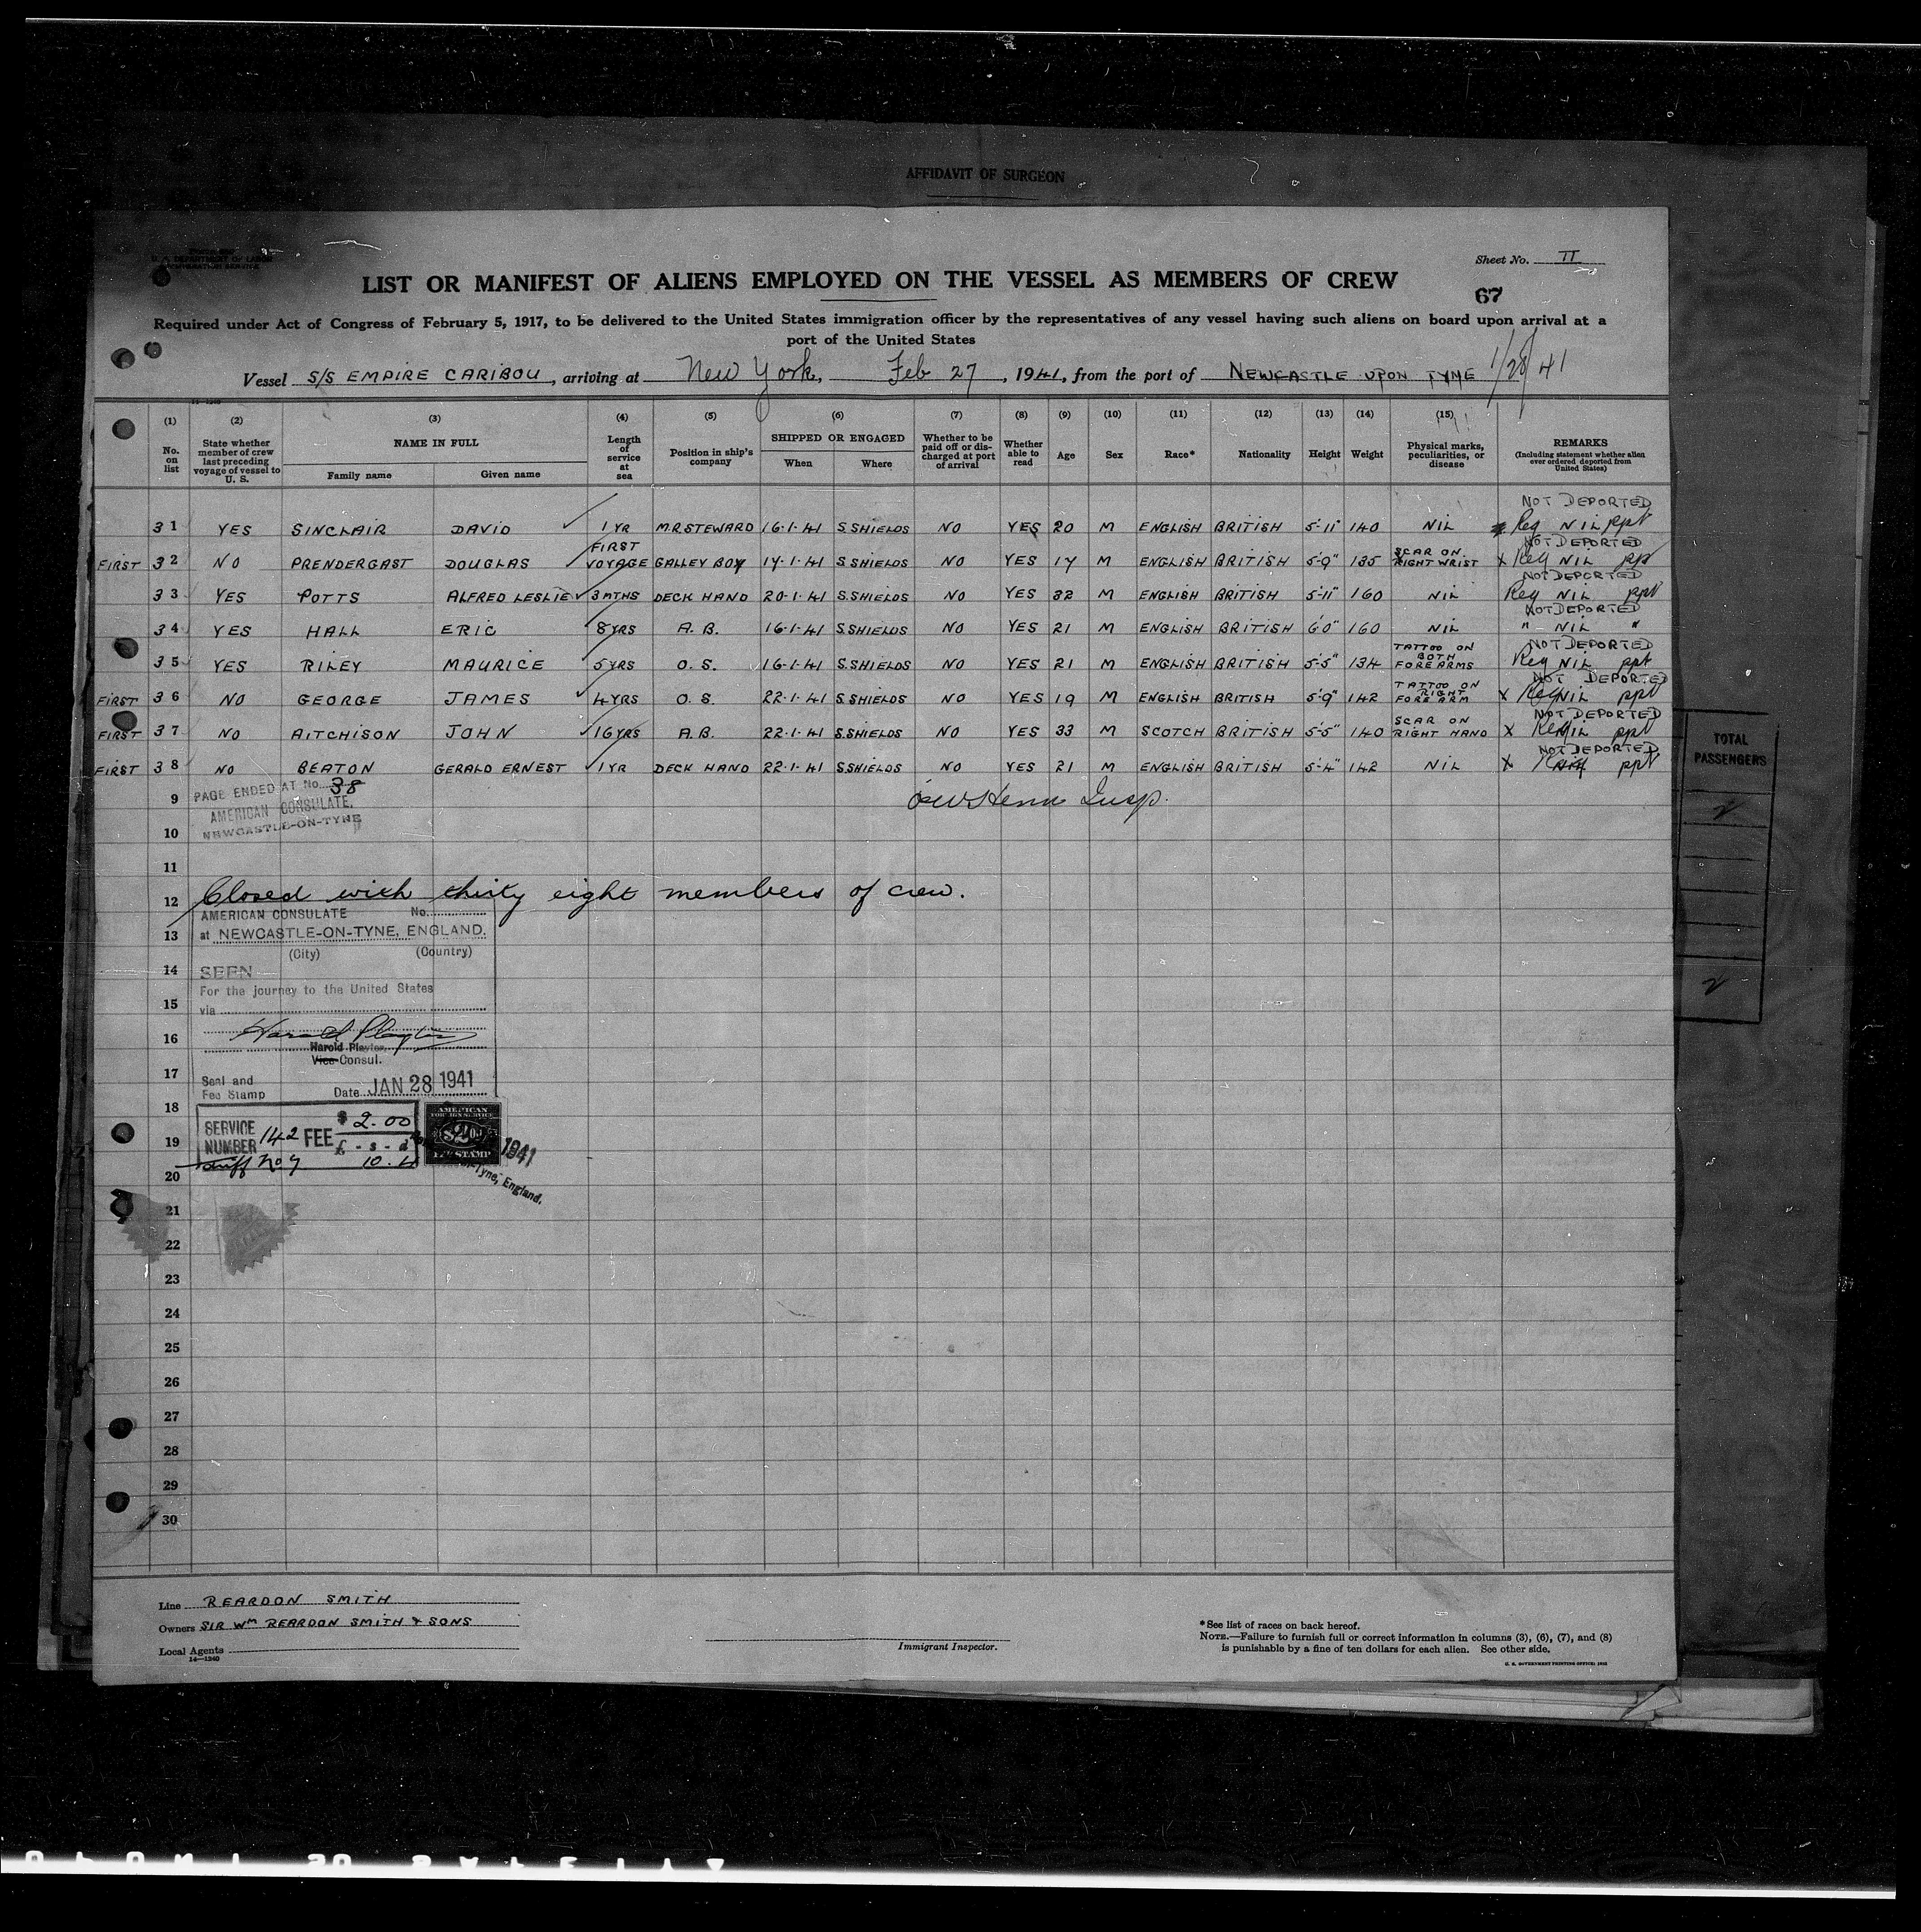 AFFIDAVIT OF SURGEON
U. S. DEPARTMENT OF LABOR
IMMIGRATION SERVICE
Sheet No. II
LIST OR MANIFEST OF ALIENS EMPLOYED ON THE VESSEL AS MEMBERS OF CREW
67
Required under Act of Congress of February 5, 1917, to be delivered to the United States immigration officer by the representatives of any vessel having such aliens on board upon arrival at a
port of the United States
Vessel S/S EMPIRE CARIBOU, arriving at New York, Feb 27, 1941, from the port of NEWCASTLE UPON TYNE 1/28/41
(1) (2) (3) (4) (5) (6) (7) (8) (9) (10) (11) (12) (13) (14) (15)
No. on list State whether member of crew last preceding voyage of vessel to U. S. NAME IN FULL Family name Given name Length of service at sea Position in ship's company SHIPPED OR ENGAGED When Where Whether to be paid off or discharged at port of arrival Whether able to read Age Sex Race* Nationality Height Weight Physical marks, peculiarities, or disease REMARKS (Including statement whether alien ever ordered deported from United States)
NOT DEPORTED
31 YES SINCLAIR DAVID 1 YR M.R.STEWARD 16.1.41 S.SHIELDS NO YES 20 M ENGLISH BRITISH 5'-11" 140 NIL Reg NIL ppt
NOT DEPORTED
FIRST 32 NO PRENDERGAST DOUGLAS FIRST VOYAGE GALLEY BOY 17.1.41 S.SHIELDS NO YES 17 M ENGLISH BRITISH 5'-9" 135 SCAR ON RIGHT WRIST X Reg NIL ppt
NOT DEPORTED
33 YES POTTS ALFRED LESLIE 3 MTHS DECK HAND 20.1.41 S.SHIELDS NO YES 32 M ENGLISH BRITISH 5'-11" 160 NIL Reg NIL ppt
NOT DEPORTED
34 YES HALL ERIC 8 YRS A.B. 16.1.41 S.SHIELDS NO YES 21 M ENGLISH BRITISH 6'0" 160 NIL " NIL "
NOT DEPORTED
35 YES RILEY MAURICE 5 YRS O.S. 16.1.41 S.SHIELDS NO YES 21 M ENGLISH BRITISH 5'-5" 134 TATTOO ON BOTH FOREARMS Reg NIL ppt
NOT DEPORTED
FIRST 36 NO GEORGE JAMES 4 YRS O.S. 22.1.41 S.SHIELDS NO YES 19 M ENGLISH BRITISH 5'-9" 142 TATTOO ON RIGHT FOREARM X Reg NIL ppt
NOT DEPORTED
FIRST 37 NO AITCHISON JOHN 16 YRS A.B. 22.1.41 S.SHIELDS NO YES 33 M SCOTCH BRITISH 5'-5" 140 SCAR ON RIGHT HAND X Reg NIL ppt
NOT DEPORTED
FIRST 38 NO BEATON GERALD ERNEST 1 YR DECK HAND 22.1.41 S.SHIELDS NO YES 21 M ENGLISH BRITISH 5'-4" 142 NIL X ppt
9 PAGE ENDED AT No. 38
AMERICAN CONSULATE,
10 NEWCASTLE-ON-TYNE
Insp.
11
12 Closed with thirty eight members of crew.
AMERICAN CONSULATE No.
13 at NEWCASTLE-ON-TYNE, ENGLAND.
(City) (Country)
14 SEEN
For the journey to the United States
15 via
16 Harold Playter
Harold Playter
Vice Consul.
17 Seal and Fee Stamp Date JAN 28 1941
18
SERVICE NUMBER 142 FEE $ 2.00
19 £ - s - d
Tariff No 7 10.4
AMERICAN FOREIGN SERVICE $2.00 FEE STAMP
1941
-Tyne, England.
20
21
22
23
24
25
26
27
28
29
30
TOTAL
PASSENGERS
2
2
Line REARDON SMITH
Owners SIR WM REARDON SMITH & SONS
Local Agents
14—1240
Immigrant Inspector.
*See list of races on back hereof.
NOTE.—Failure to furnish full or correct information in columns (3), (6), (7), and (8)
is punishable by a fine of ten dollars for each alien. See other side.